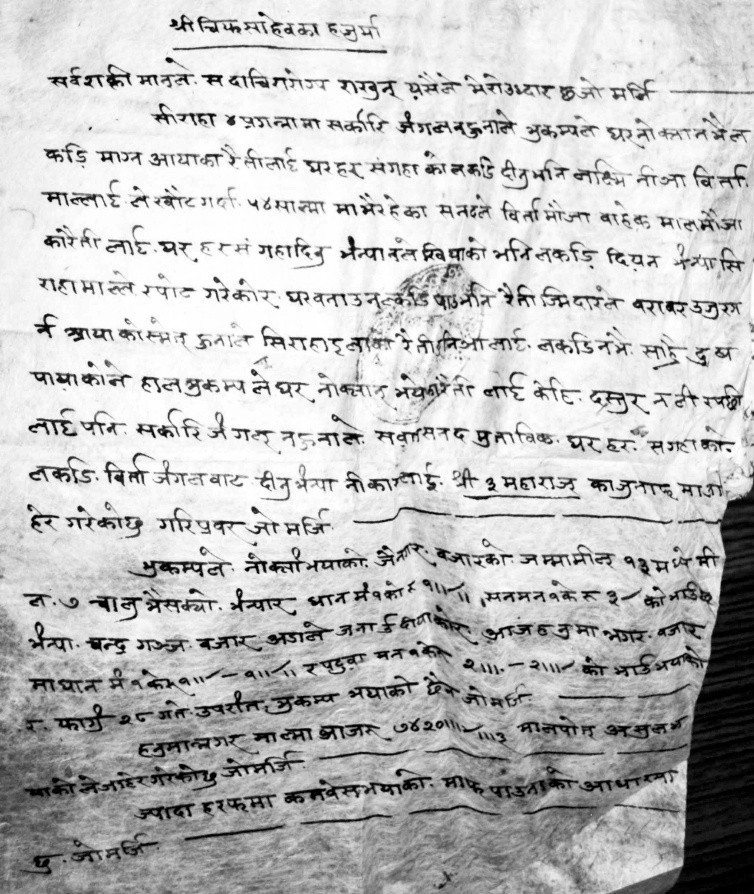 श्री चिफसाहेवका हजुरमा
सर्वशक्ती मानले. सदा चिरारोग्य राखुन् यसैले मेरो उध्दार छ जो मर्जि
सीराहा ४ प्रगन्नामा सर्कारि जंगल नहुनाले भुकम्पले घर नोक्सान भै ल
कडि माग्न आयाका रैतीलाई घरहर संगहा को लकडि दीनु भनि
माल्लाई. ले रपोट गर्दा. ५४ सालमा माभैरहेका सनदले विर्ता मौजा वाहेक माल मौजा
का रैती लाई. घर हर संगहा दिनु भन्या लकडि दियन भन्या सि
राहा माल्ले रपोट गरेको र. घर वनाउन लकडि पाउ भनि रैती जिमिदारले वरावर उजुर ग
र्न आयाको समेत हुनाले सिराहा इलाका रैती दुनिञालाई. लकडि नभै. साह्रै दुख
पायाकोले हाल भुकम्पले घर नोक्सान भयेका रैती लाई केहि. दस्तुर न ली
लाई पनि. सर्कारि जंगल नहुनाले. सनद मुताविक. घर हर. संगहा को.
लकडि. विर्ता जंगल वाट दीनु भन्या श्री ३ महाराज का जुनाफमा जा
हेर गरेकोछु गरिप्रवर जो मर्जि.
भुकम्पले. नोक्सान भयाको. वजारको. जम्मा मील १३ मध्ये मी
ल. ७ चालु भैसक्यो. धान मं १ को रु १॥।
भन्या. चन्द्र गञ्ज. वजार आजं ठनुमा भगर. वजार
मा धान मं १ के रु १॥।- - १॥।॥ र पटुवा मन १ को रु २॥।. - २॥।- को भाउ भयाको
र. फागुं २८ गते. उपरांत. भुकम्प भयाको छैन जो मर्जि.
हनुमान्नगर मालमा आज रु ७४२०॥।-॥।३ मालपोत असुल भ
याकोले जाहेर गरेकोछु जो मर्जि.
ज्यादा हरफमा कमवेस भयाको. माफ पाउनाको आधारमा
छु. जो मर्जि.